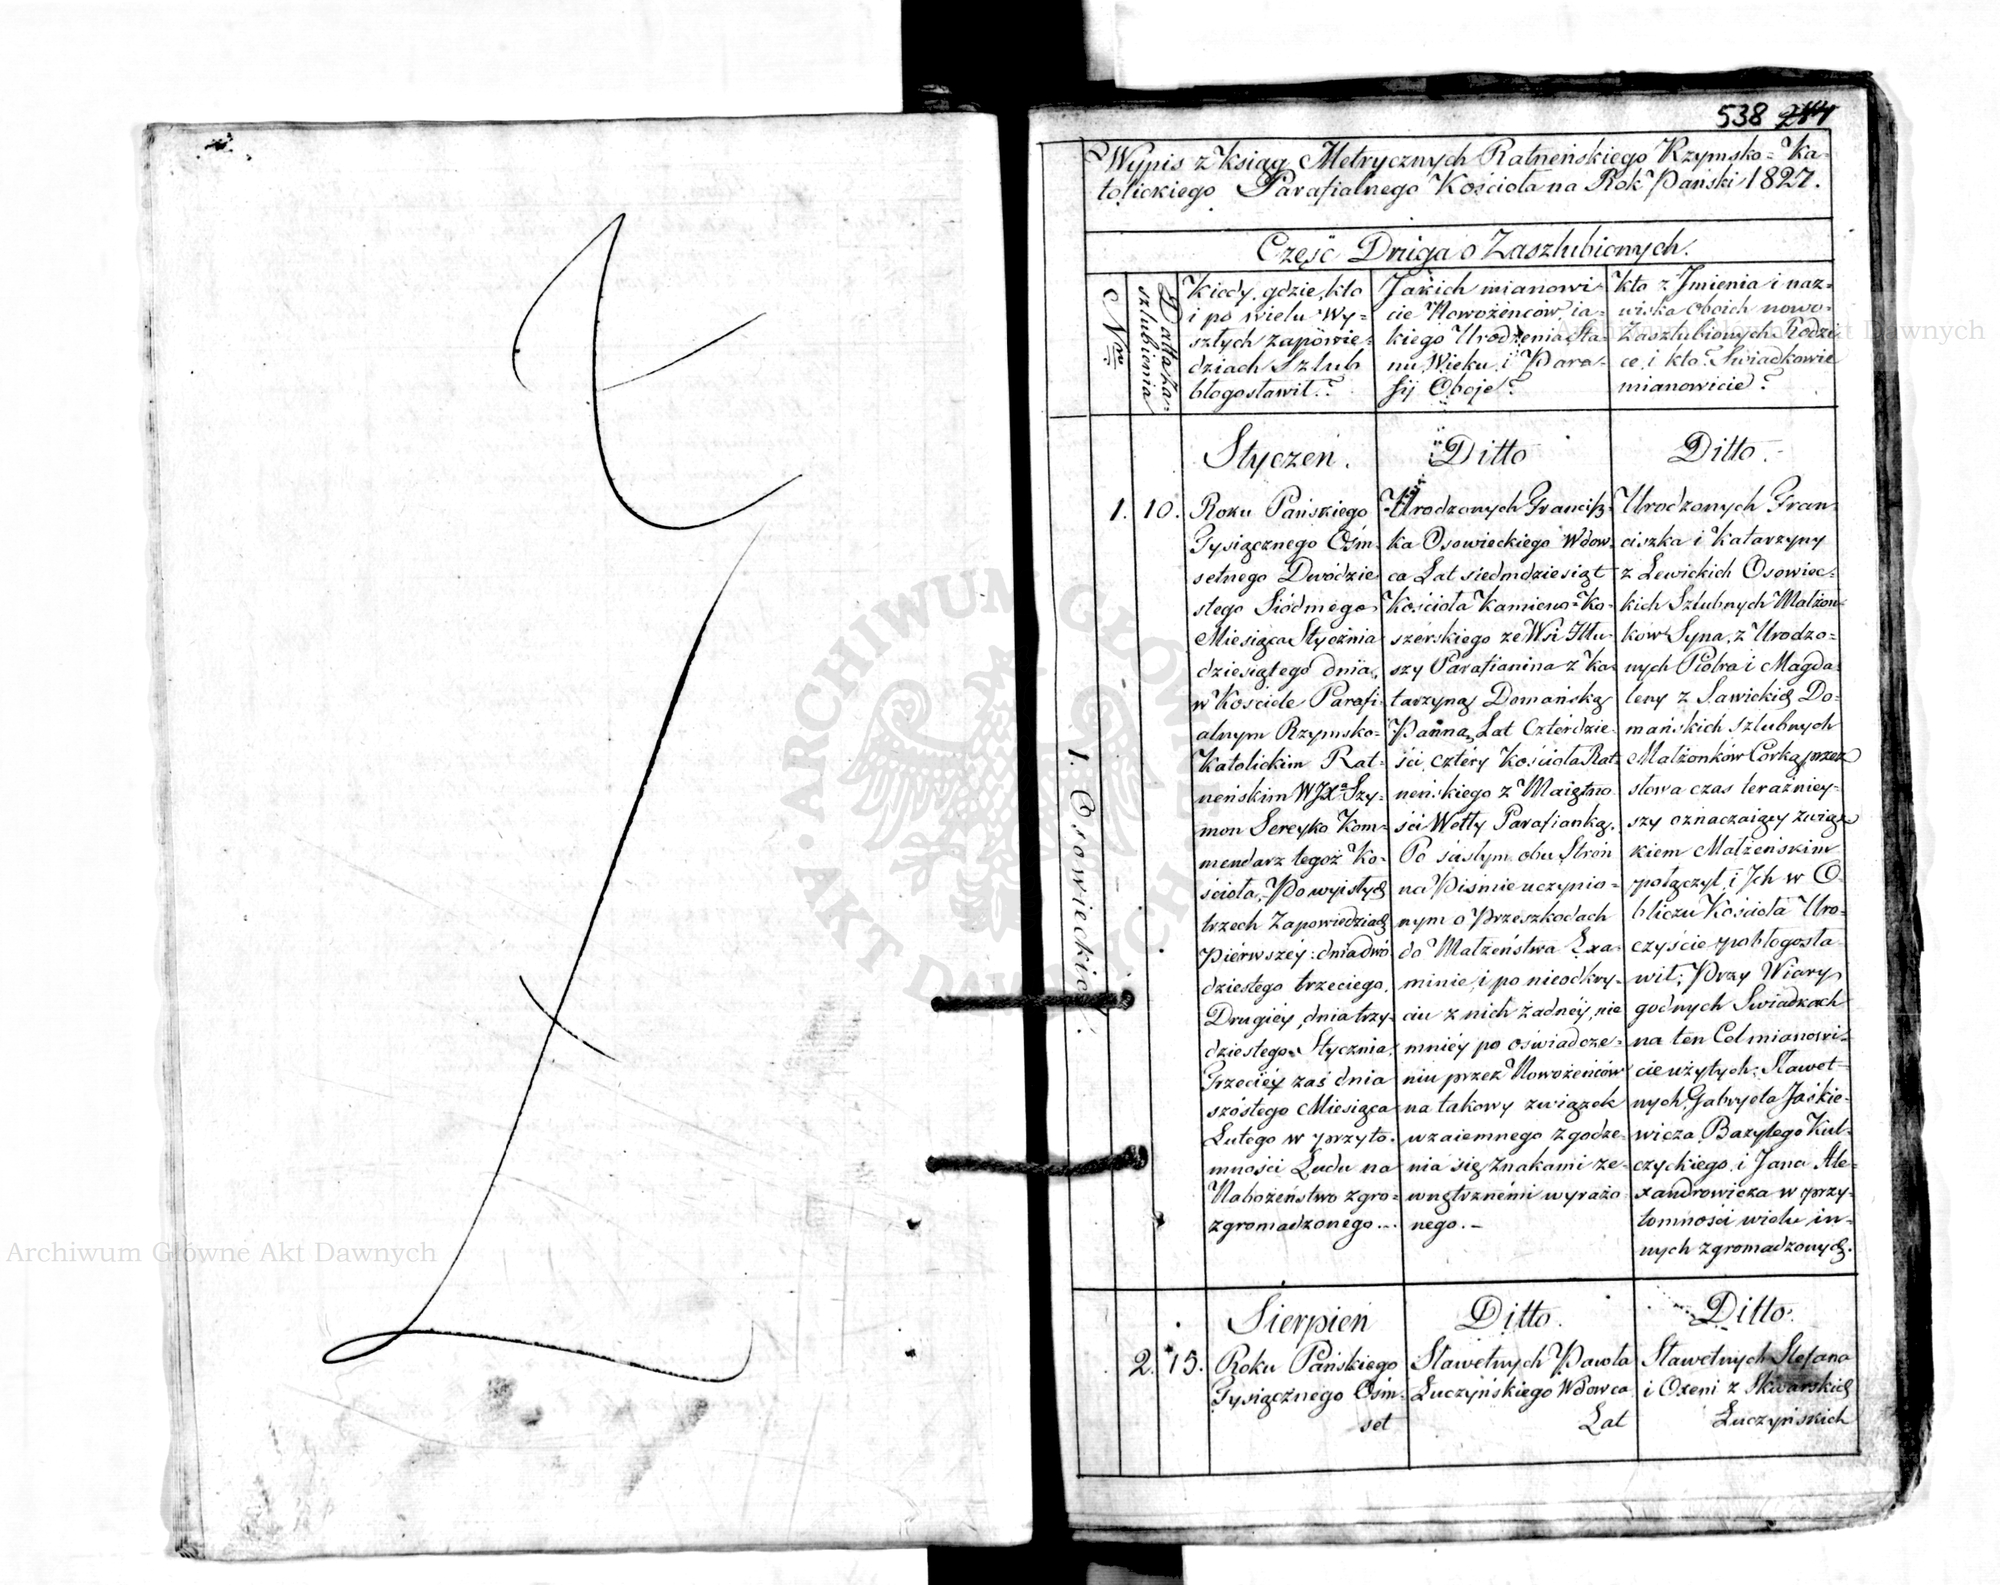 538 284
Wypis z Ksiąg Metrycznych Ratneńskiego Rzymsko=Ka=
tolickiego Parafialnego Kościoła na Rok Pański 1827.
Część Druga o Zaszlubionych.
Nro
Datta Za=
szlubienia
Kiedy, gdzie, kto
i po wielu Wy=
szłych zapowie=
dziach Szlub
błogosławił.?
Jakich mianowi=
cie Nowożeńców, ia=
kiego Urodzenia, Sta=
nu, Wieku, i Para=
fij Oboje?
Kto z Jmienia i naz=
wiska Oboich nowo=
Zaszlubionych Rodzi
ce, i kto Swiadkowie
mianowicie?
Styczeń.
1. 10.
Roku Pańskiego
Tysiącznego Ośm=
setnego Dwódzie
stego Siódmego
Miesiąca Stycznia
dziesiątego dnia,
w Kościele Parafi=
alnym Rzymsko=
Katolickim Rat=
neńskim WJX Szy=
mon Sereyko Kom=
mendarz tegoż Ko=
ścioła, Po wyisłych
trzech Zapowiedziach
Pierwszéy: dnia dwó
dziestego trzeciego,
Drugiéy, dnia trzy=
dziestego Stycznia,
Trzeciéy zaś dnia
szóstego Miesiąca
Lutego w przyto=
mności Ludu na
Nabożeństwo zgro=
zgromadzonego...
Ditto
Urodzonych Francisz=
ka Osowieckiego Wdow=
ca Lat siedmdziesiąt
Kościoła Kamieno=Ko=
szerskiego ze Wsi Hłu=
szy Parafianina z Ka=
tarzyną Domańską
Panną Lat Czterdzie=
ści cztéry Kościoła Rat=
neńskiego z Maiętno
ści Wetły Parafianką.
Po ścisłym obu Stron
na Piśmie uczynio=
nym o Przeszkodach
do Małżeństwa Exa=
minie, i po nieodkry=
ciu z nich żadnéy, nie
mniéy po oświadcze=
niu przez Nowożeńców
na takowy związek
wzaiemnego zgodze=
nia się znakami ze=
wnętrznémi wyrażo
nego.-
Ditto.
Urodzonych Fran=
ciszka i Katarzyny
z Lewickich Osowiec=
kich Szlubnych Małżon=
ków Syna, z Urodzo=
nych Piotra i Magda=
leny z Sawickich Do=
mańskich szlubnych
Małżonków Córką, przez
słowa czas teraźniey=
szy oznaczaiący związ=
kiem Małżeńskim
połączył, i Jch w O=
bliczu Kościoła Uro=
czyście pobłogosła=
wił; Przy Wiary=
godnych Swiadkach
na ten Cel mianowi=
cie użytych: Sławet=
nych, Gabryela Jaśkie=
wicza, Bazylego Kul=
czyckiego, i Jana Ale=
xandrowicza w przy=
tomności wielu in=
nych zgromadzonych.
1. Osowieckich.
Sierpień
2. 15.
Roku Pańskiego
Tysiącznego Ośm=
set
Ditto.
Sławetnych Pawła
Łuczyńskiego Wdowca
Lat
Ditto.
Sławetnych Stefana
i Oxeni z Skwarskich
Łuczyńskich
ARCHIWUM GŁÓWNE AKT DAWNYCH
Archiwum Główne Akt Dawnych
Archiwum Główne Akt Dawnych